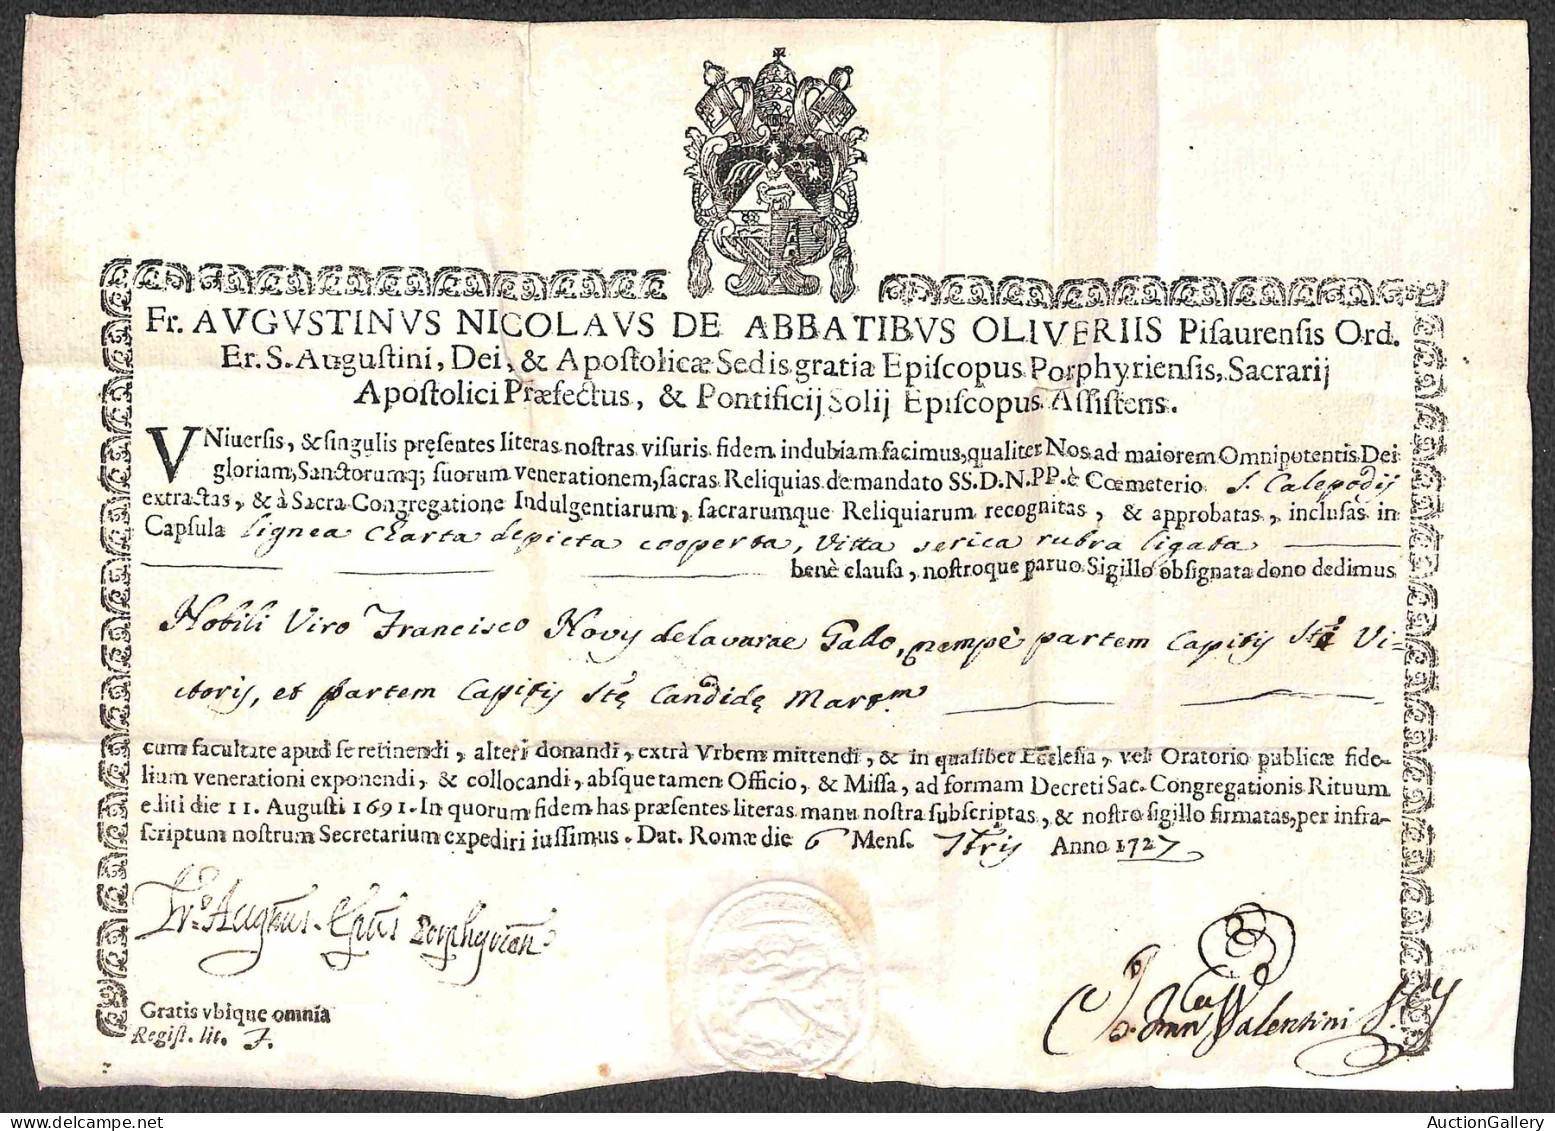 Fr. AVGVSTINVS NICOLAVS DE ABBATIBVS OLIVERIIS Pisaurensis Ord.
Er. S. Augustini, Dei, & Apostolicæ Sedis gratia Episcopus Porphyriensis, Sacrarij
Apostolici Præfectus, & Pontificij Solij Episcopus Assistens.
VNiversis, & singulis pręsentes literas nostras visuris fidem indubiam facimus, qualiter Nos ad maiorem Omnipotentis Dei
gloriam, Sanctorumq; suorum venerationem, sacras Reliquias de mandato SS. D. N. PP. è Cœmeterio S. Calepodij
extractas, & à Sacra Congregatione Indulgentiarum, sacrarumque Reliquiarum recognitas, & approbatas, inclusas in
Capsula lignea Charta depicta cooperta, Vitta serica rubra ligata
benè clausa, nostroque paruo Sigillo obsignata dono dedimus
Nobili Viro Francisco Novy delavarae Gallo, nempè partem Capitis Sti Vi-
ctoris, et partem Capitis Stę Candidę Martm
cum facultate apud se retinendi, alteri donandi, extrà Vrbem mittendi, & in qualibet Ecclesia, vel Oratorio publicæ fide-
lium venerationi exponendi, & collocandi, absque tamen Officio, & Missa, ad formam Decreti Sac. Congregationis Rituum
editi die 11. Augusti 1691. In quorum fidem has præsentes literas manu nostra subscriptas, & nostro sigillo firmatas, per infra-
scriptum nostrum Secretarium expediri iussimus. Dat. Romæ die 6 Mens. Xbris Anno 1727
Fr. Augnus. Epus Porphyrien
Valentini
Gratis vbique omnia
Regist. lit. F.
AuctionGallery